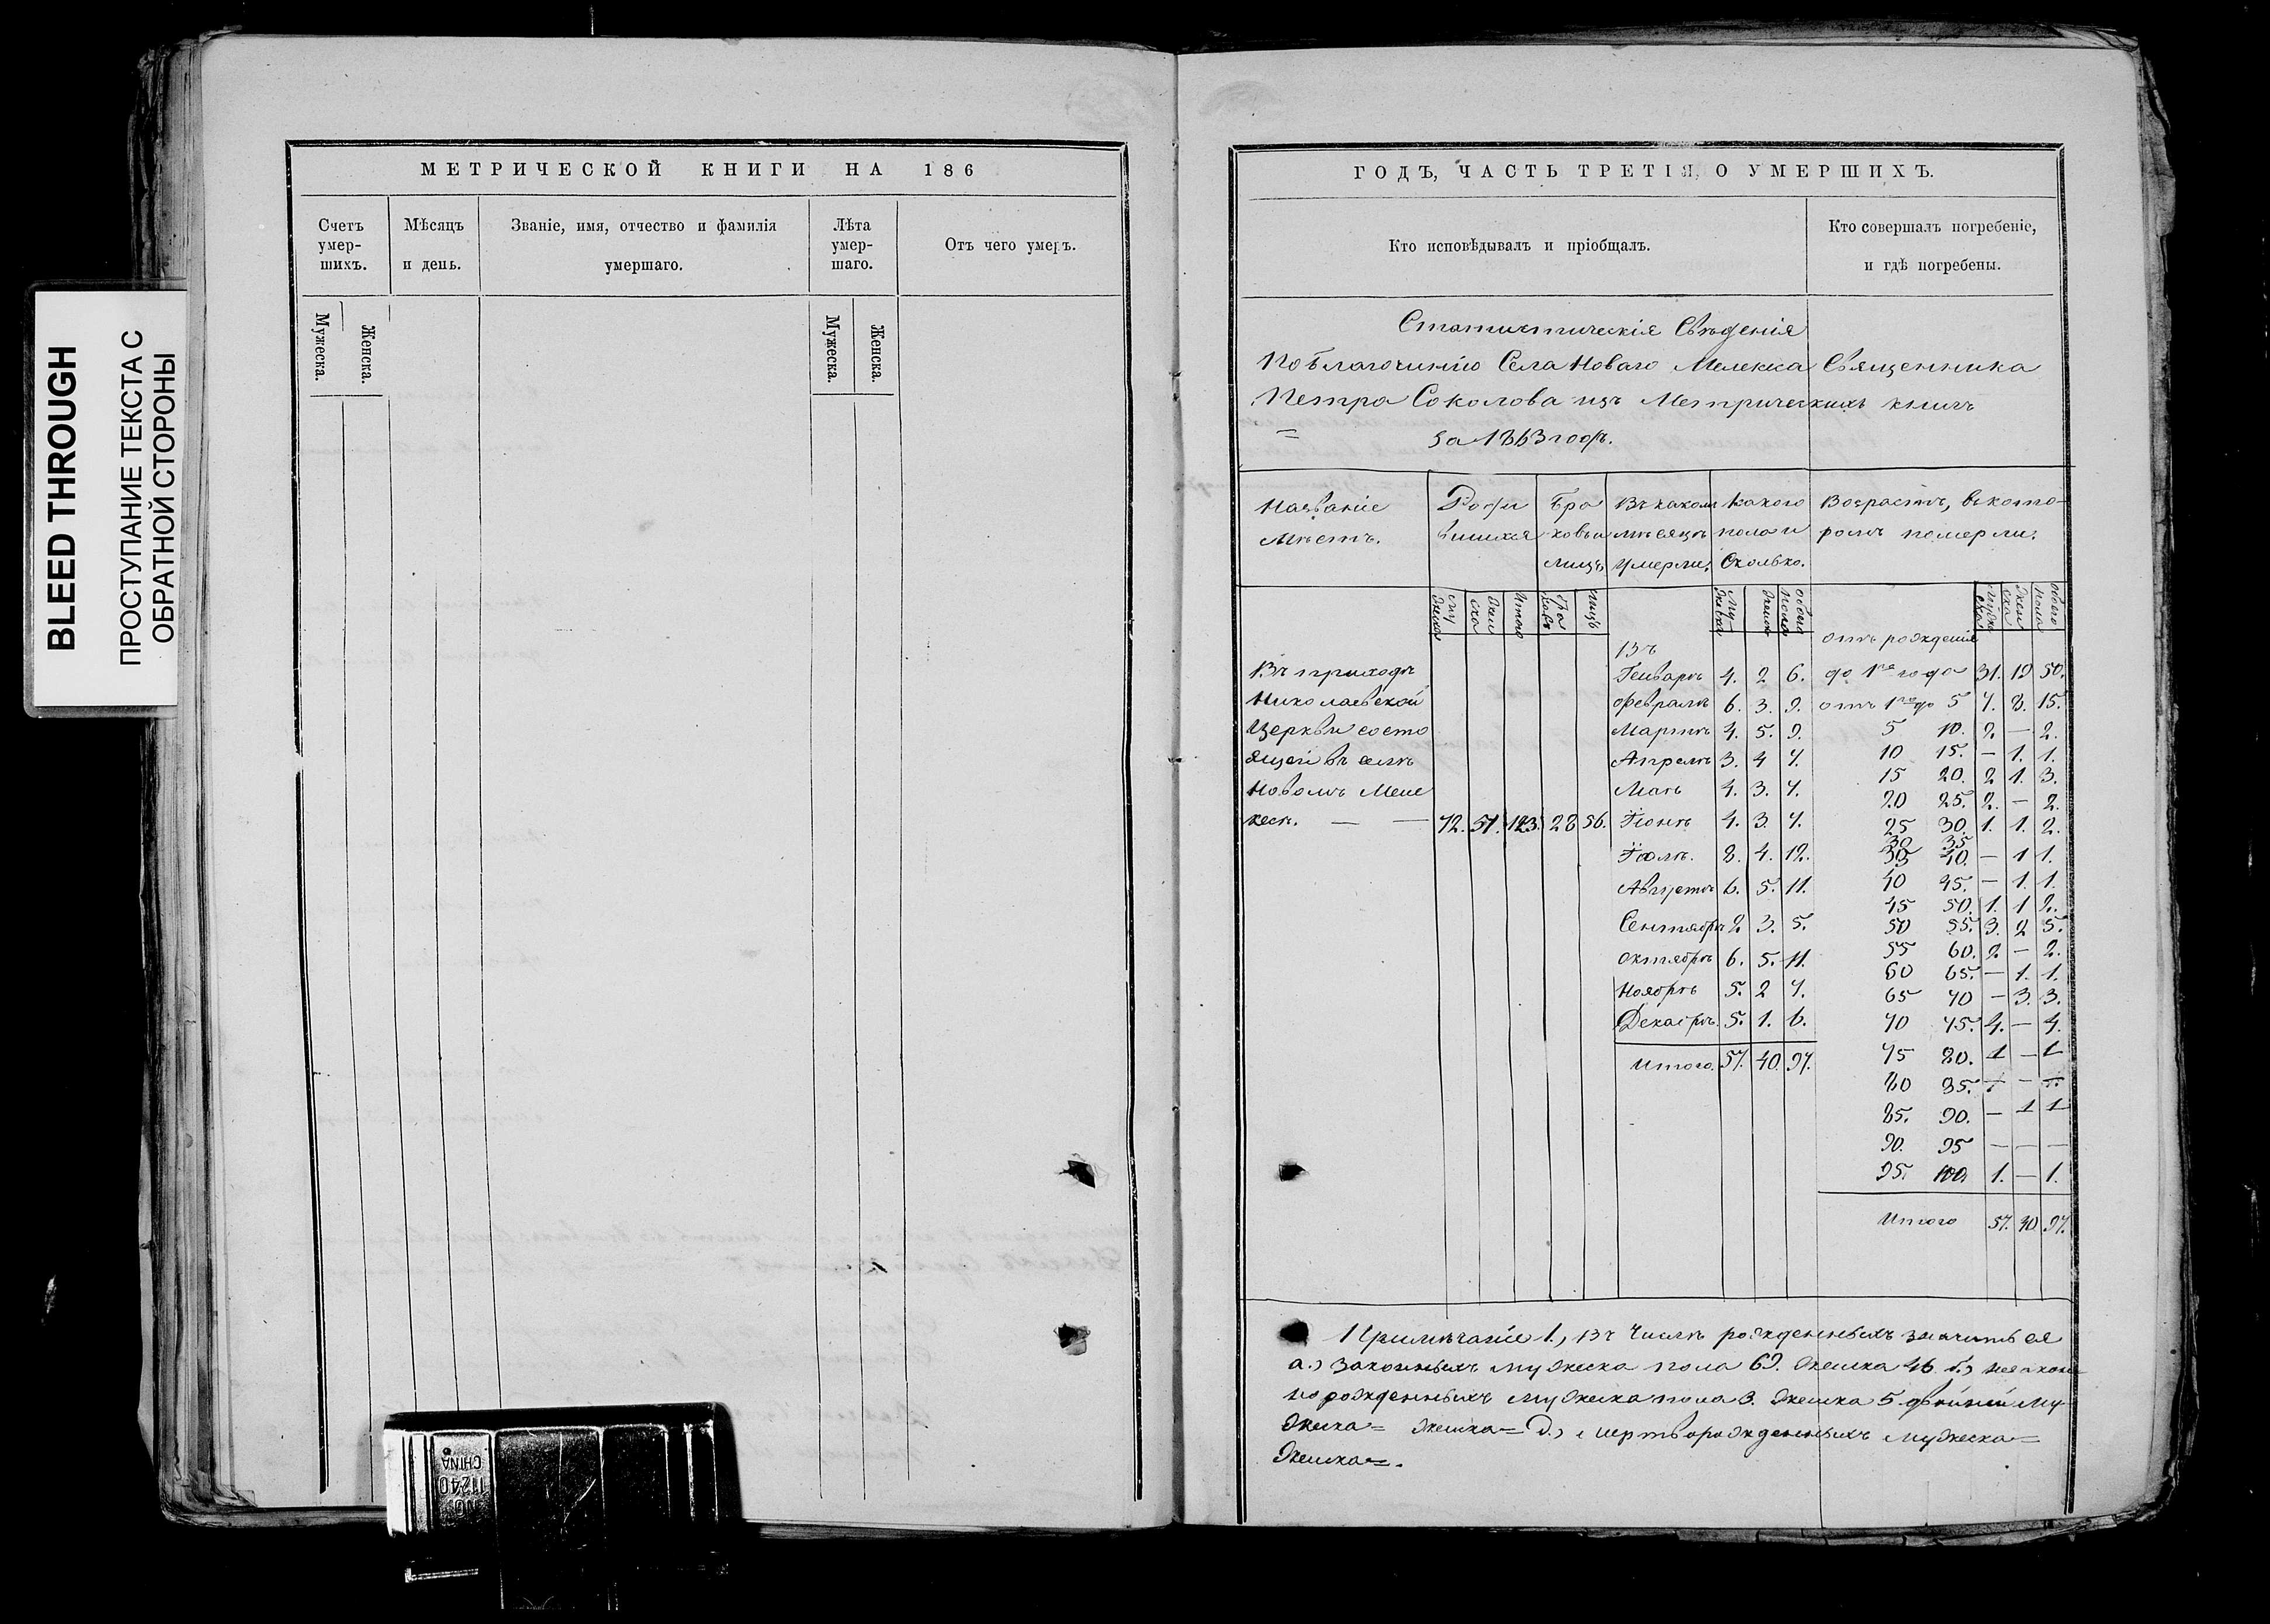 BLEED THROUGH
ПРОСТУПАНИЕ ТЕКСТА С
ОБРАТНОЙ СТОРОНЫ
МЕТРИЧЕСКОЙ КНИГИ НА 186
Счетъ умер-шихъ.
Мѣсяцъ и день.
Званіе, имя, отчество и фамилія умершаго.
Лѣта умер-шаго.
Отъ чего умеръ.
Мужеска.
Женска.
Мужеска.
Женска.
NO. 11240
CHINA
ГОДЪ, ЧАСТЬ ТРЕТІЯ, О УМЕРШИХЪ.
Кто исповѣдывалъ и пріобщалъ.
Кто совершалъ погребеніе, и гдѣ погребены.
Статистическія Свѣденія
По благочинію Села Новаго Мелекка Священника
Петра Соколова изъ Метрическихъ книгъ
за 1863 годъ.
Названіе мѣстъ.
Роди вшихся
Бра ковъ и лицъ
Въ какомъ мѣсяцѣ умерли,
Какого пола и сколько.
Возрастъ, въ кото-ромъ померли.
Му жеска
Жен ска
Итого
Бра ковъ
Лицъ
Му-жеска
Женск
Обоего пола
Мужеска
Жен ска
Обоего пола
Въ приходѣ
Николаевской
Церкви состо
ящей въ селѣ
Новомъ Меле
кесѣ. — — 72. 51. 123. 28 56.
Въ
Генварѣ 4. 2 6.
Февралѣ 6. 3. 9.
Мартѣ 4. 5. 9.
Апрелѣ 3. 4 7.
Маѣ 4. 3. 7.
Іюнѣ 4. 3. 7.
Іюлѣ. 8. 4. 12.
Августѣ 6. 5. 11.
Сентябрѣ 2. 3. 5.
Октябрѣ 6. 5. 11.
Ноябрѣ 5. 2 7.
Декабрѣ. 5. 1. 6.
Итого. 57. 40. 97.
отъ рожденія
до 1го года 31. 19 50.
отъ 1го до 5 7. 8. 15.
5 10. 2. — 2.
10 15. — 1. 1.
15 20. 2 1. 3.
20 25. 2. — 2.
25 30. 1. 1. 2.
30 35
35 40. — 1 1.
40 45. — 1. 1.
45 50. 1. 1 2.
50 55. 3. 2 5.
55 60. 2 — 2.
60 65. — 1. 1.
65 70 — 3. 3.
70 75. 4. — 4.
75 80. 1 — 1
80 85. — — —
85. 90. — 1 1
90. 95 — — —
95. 100. 1. — 1.
Итого 57. 40. 97.
Примѣчаніе 1., Въ числѣ рожденныхъ значится
а.) законныхъ мужеска пола 69. женска 46 б.) незакон
но рожденныхъ мужеска пола 3. женска 5 двойни му
жеска = женска = д.) мертворожденныхъ мужеска =
женска =.